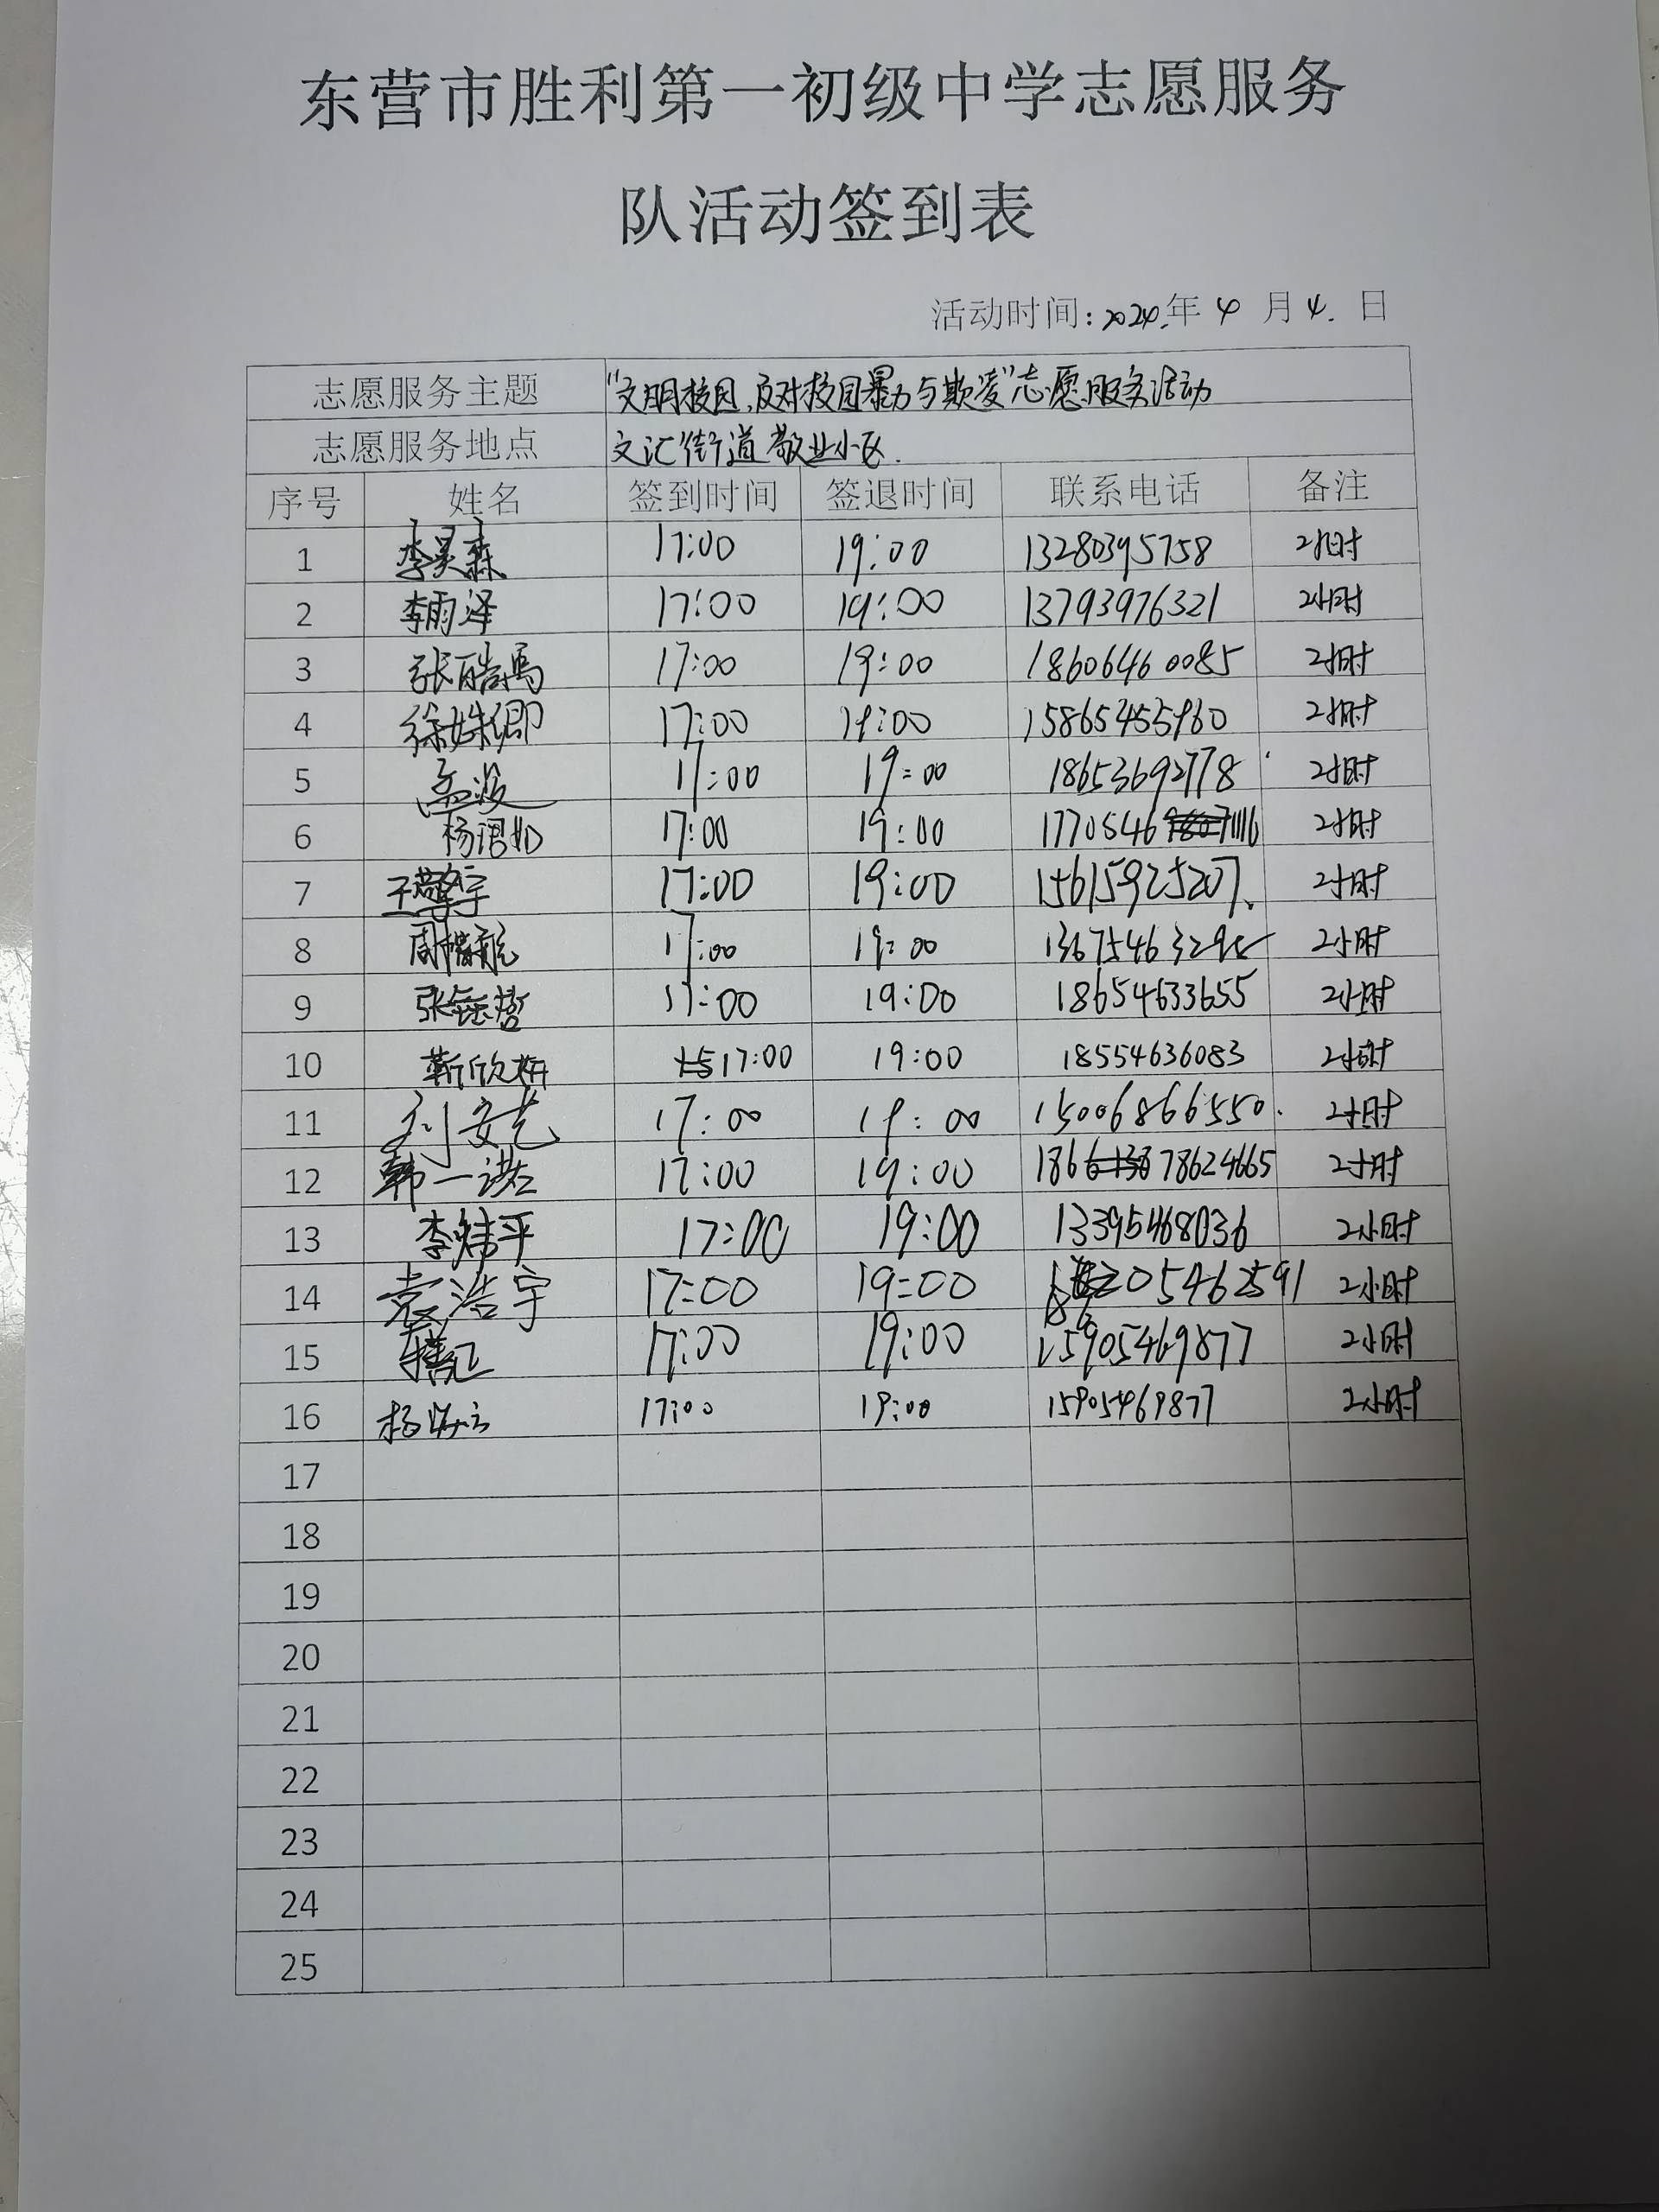 东营市胜利第一初级中学志愿服务
队活动签到表
活动时间：2024.年 4 月 4. 日
志愿服务主题 “文明校园，反对校园暴力与欺凌”志愿服务活动
志愿服务地点 文汇街道敬业小区.
序号 姓名 签到时间 签退时间 联系电话 备注
1 李昊霖 17:00 19:00 13280395758 2小时
2 李雨泽 17:00 19:00 13793976321 2小时
3 张皓 17:00 19:00 18606460085 2小时
4 徐姝卿 17:00 19:00 15865455960 2小时
5 孟 17:00 19:00 18653692778 2小时
6 杨 17:00 19:00 1770546 2小时
7 王擎宇 17:00 19:00 15615925207. 2小时
8 周 航 17:00 19:00 2小时
9 张 哲 17:00 19:00 18654633655 2小时
10 靳欣妍 17:00 19:00 18554636083 2小时
11 刘安艺 17:00 19:00 15006866550. 2小时
12 韩一诺 17:00 19:00 186 78624665 2小时
13 李炜平 17:00 19:00 13395468036 2小时
14 袁浩宇 17:00 19:00 05462591 2小时
15 17:00 19:00 15905469877 2小时
16 杨 17:00 19:00 15905469877 2小时
17
18
19
20
21
22
23
24
25